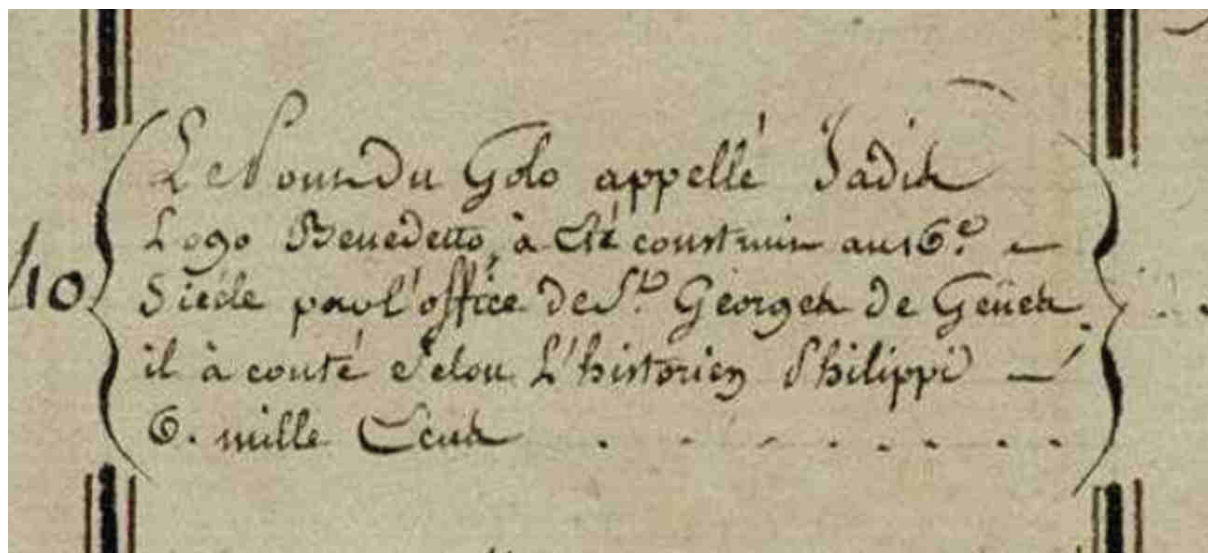 Le Pont du Golo appellé Jadis
Lago Benedetto, à été construit au 16.e
Siécle par l'office de St. Georges de Gênes
10
il à couté selon L'historien Philippi
6. mille Ecus . . . . . . . . .